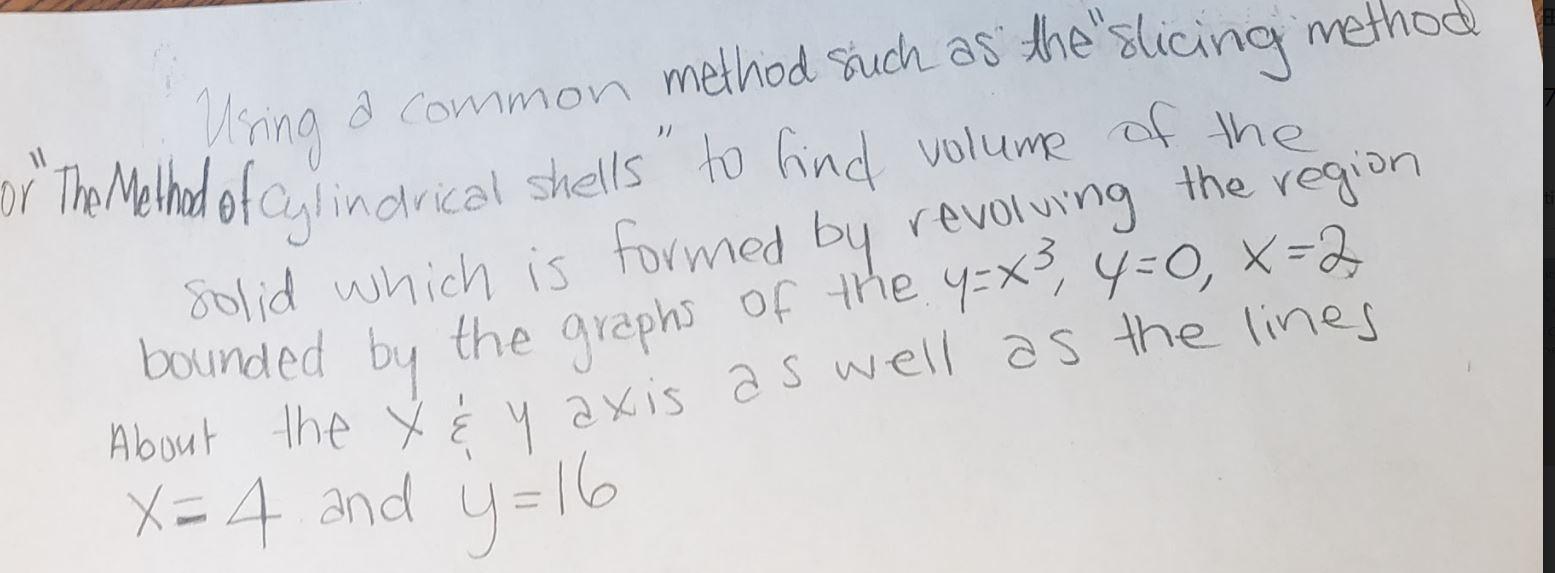 Using a common method such as the "slicing method
or "The Method of Cylindrical shells" to find volume of the
solid which is formed by revolving the region
bounded by the graphs of the y=x³, y=0, x=2
About the x & y axis as well as the lines
x=4 and y=16